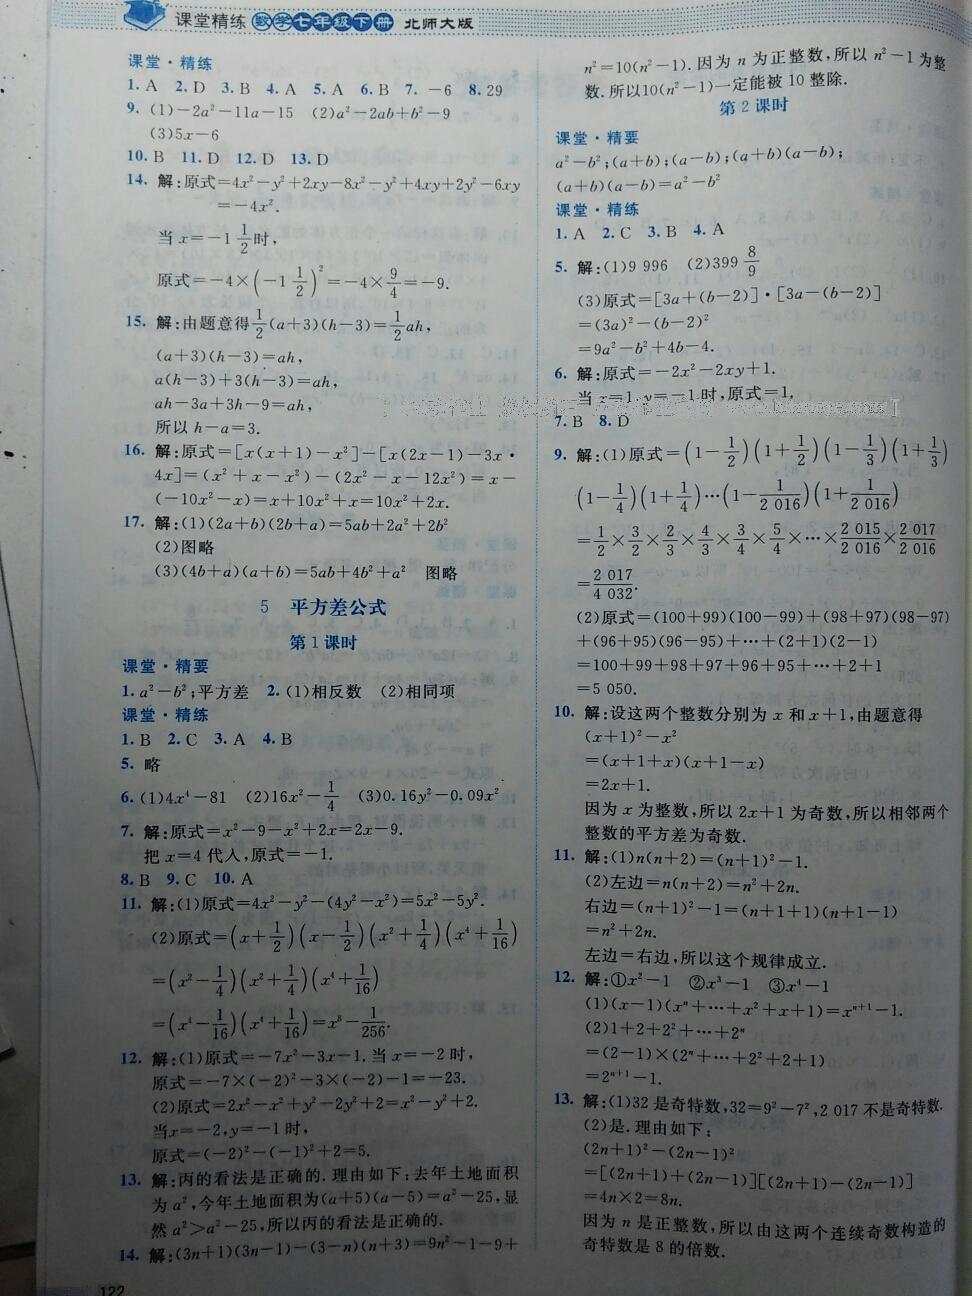 课堂精练 数学七年级下册 北师大版
课堂·精练
1. A 2. D 3. B 4. A 5. A 6. B 7. －6 8. 29
9. (1)－2a²－11a－15 (2)a²－2ab＋b²－9
(3)5x－6
10. B 11. D 12. D 13. D
14. 解:原式＝4x²－y²＋2xy－8x²－y²＋4xy＋2y²－6xy
＝－4x².
当 x＝－1 1/2 时,
原式＝－4×(－1 1/2)²＝－4×9/4＝－9.
15. 解:由题意得1/2(a＋3)(h－3)＝1/2ah,
(a＋3)(h－3)＝ah,
a(h－3)＋3(h－3)＝ah,
ah－3a＋3h－9＝ah,
所以 h－a＝3.
16. 解:原式＝[x(x＋1)－x²]－[x(2x－1)－3x·
4x]＝(x²＋x－x²)－(2x²－x－12x²)＝x－
(－10x²－x)＝x＋10x²＋x＝10x²＋2x.
17. 解:(1)(2a＋b)(2b＋a)＝5ab＋2a²＋2b²
(2)图略
(3)(4b＋a)(a＋b)＝5ab＋4b²＋a² 图略
5 平方差公式
第 1 课时
课堂·精要
1. a²－b²;平方差 2. (1)相反数 (2)相同项
课堂·精练
1. B 2. C 3. A 4. B
5. 略
6. (1)4x⁴－81 (2)16x²－1/4 (3)0.16y²－0.09x²
7. 解:原式＝x²－9－x²＋2x＝2x－9.
把 x＝4 代入,原式＝－1.
8. B 9. C 10. A
11. 解:(1)原式＝4x²－y²－(4y²－x²)＝5x²－5y².
(2)原式＝(x＋1/2)(x－1/2)(x²＋1/4)(x⁴＋1/16)
＝(x²－1/4)(x²＋1/4)(x⁴＋1/16)
＝(x⁴－1/16)(x⁴＋1/16)＝x⁸－1/256.
12. 解:(1)原式＝－7x²－3x－1. 当 x＝－2 时,
原式＝－7×(－2)²－3×(－2)－1＝－23.
(2)原式＝2x²－x²＋y²－2y²＋2＝x²－y²＋2.
当x＝－2,y＝－1 时,
原式＝(－2)²－(－1)²＋2＝5.
13. 解:丙的看法是正确的. 理由如下:去年土地面积
为 a²,今年土地面积为(a＋5)(a－5)＝a²－25,显
然 a²＞a²－25,所以丙的看法是正确的.
14. 解:(3n＋1)(3n－1)－(3－n)(n＋3)＝9n²－1－9＋
122
n²＝10(n²－1). 因为 n 为正整数,所以 n²－1 为整
数. 所以10(n²－1)一定能被 10 整除.
第 2 课时
课堂·精要
a²－b²;(a＋b);(a－b);(a＋b)(a－b);
(a＋b)(a－b)＝a²－b²
课堂·精练
1. A 2. C 3. B 4. A
5. 解:(1)9 996 (2)399 8/9
(3)原式＝[3a＋(b－2)]·[3a－(b－2)]
＝(3a)²－(b－2)²
＝9a²－b²＋4b－4.
6. 解:原式＝－2x²－2xy＋1.
当 x＝1,y＝－1时,原式＝1.
7. B 8. D
9. 解:(1)原式＝(1－1/2)(1＋1/2)(1－1/3)(1＋1/3)
(1－1/4)(1＋1/4)…(1－1/2 016)(1＋1/2 016)
＝1/2×3/2×2/3×4/3×3/4×5/4×…×2 015/2 016×2 017/2 016
＝2 017/4 032.
(2)原式＝(100＋99)(100－99)＋(98＋97)(98－97)
＋(96＋95)(96－95)＋…＋(2＋1)(2－1)
＝100＋99＋98＋97＋96＋95＋…＋2＋1
＝5 050.
10. 解:设这两个整数分别为 x 和 x＋1,由题意得
(x＋1)²－x²
＝(x＋1＋x)(x＋1－x)
＝2x＋1.
因为 x 为整数,所以 2x＋1 为奇数,所以相邻两个
整数的平方差为奇数.
11. 解:(1)n(n＋2)＝(n＋1)²－1.
(2)左边＝n(n＋2)＝n²＋2n.
右边＝(n＋1)²－1＝(n＋1＋1)(n＋1－1)
＝n²＋2n.
左边＝右边,所以这个规律成立.
12. 解:①x²－1 ②x³－1 ③x⁴－1
(1)(x－1)(xⁿ＋…＋x²＋x＋1)＝xⁿ⁺¹－1.
(2)1＋2＋2²＋…＋2ⁿ
＝(2－1)×(2ⁿ＋…＋2²＋2＋1)
＝2ⁿ⁺¹－1.
13. 解:(1)32 是奇特数,32＝9²－7²,2 017 不是奇特数.
(2)是. 理由如下:
(2n＋1)²－(2n－1)²
＝[(2n＋1)＋(2n－1)][(2n＋1)－(2n－1)]
＝4n×2＝8n.
因为 n 是正整数,所以由这两个连续奇数构造的
奇特数是 8 的倍数.